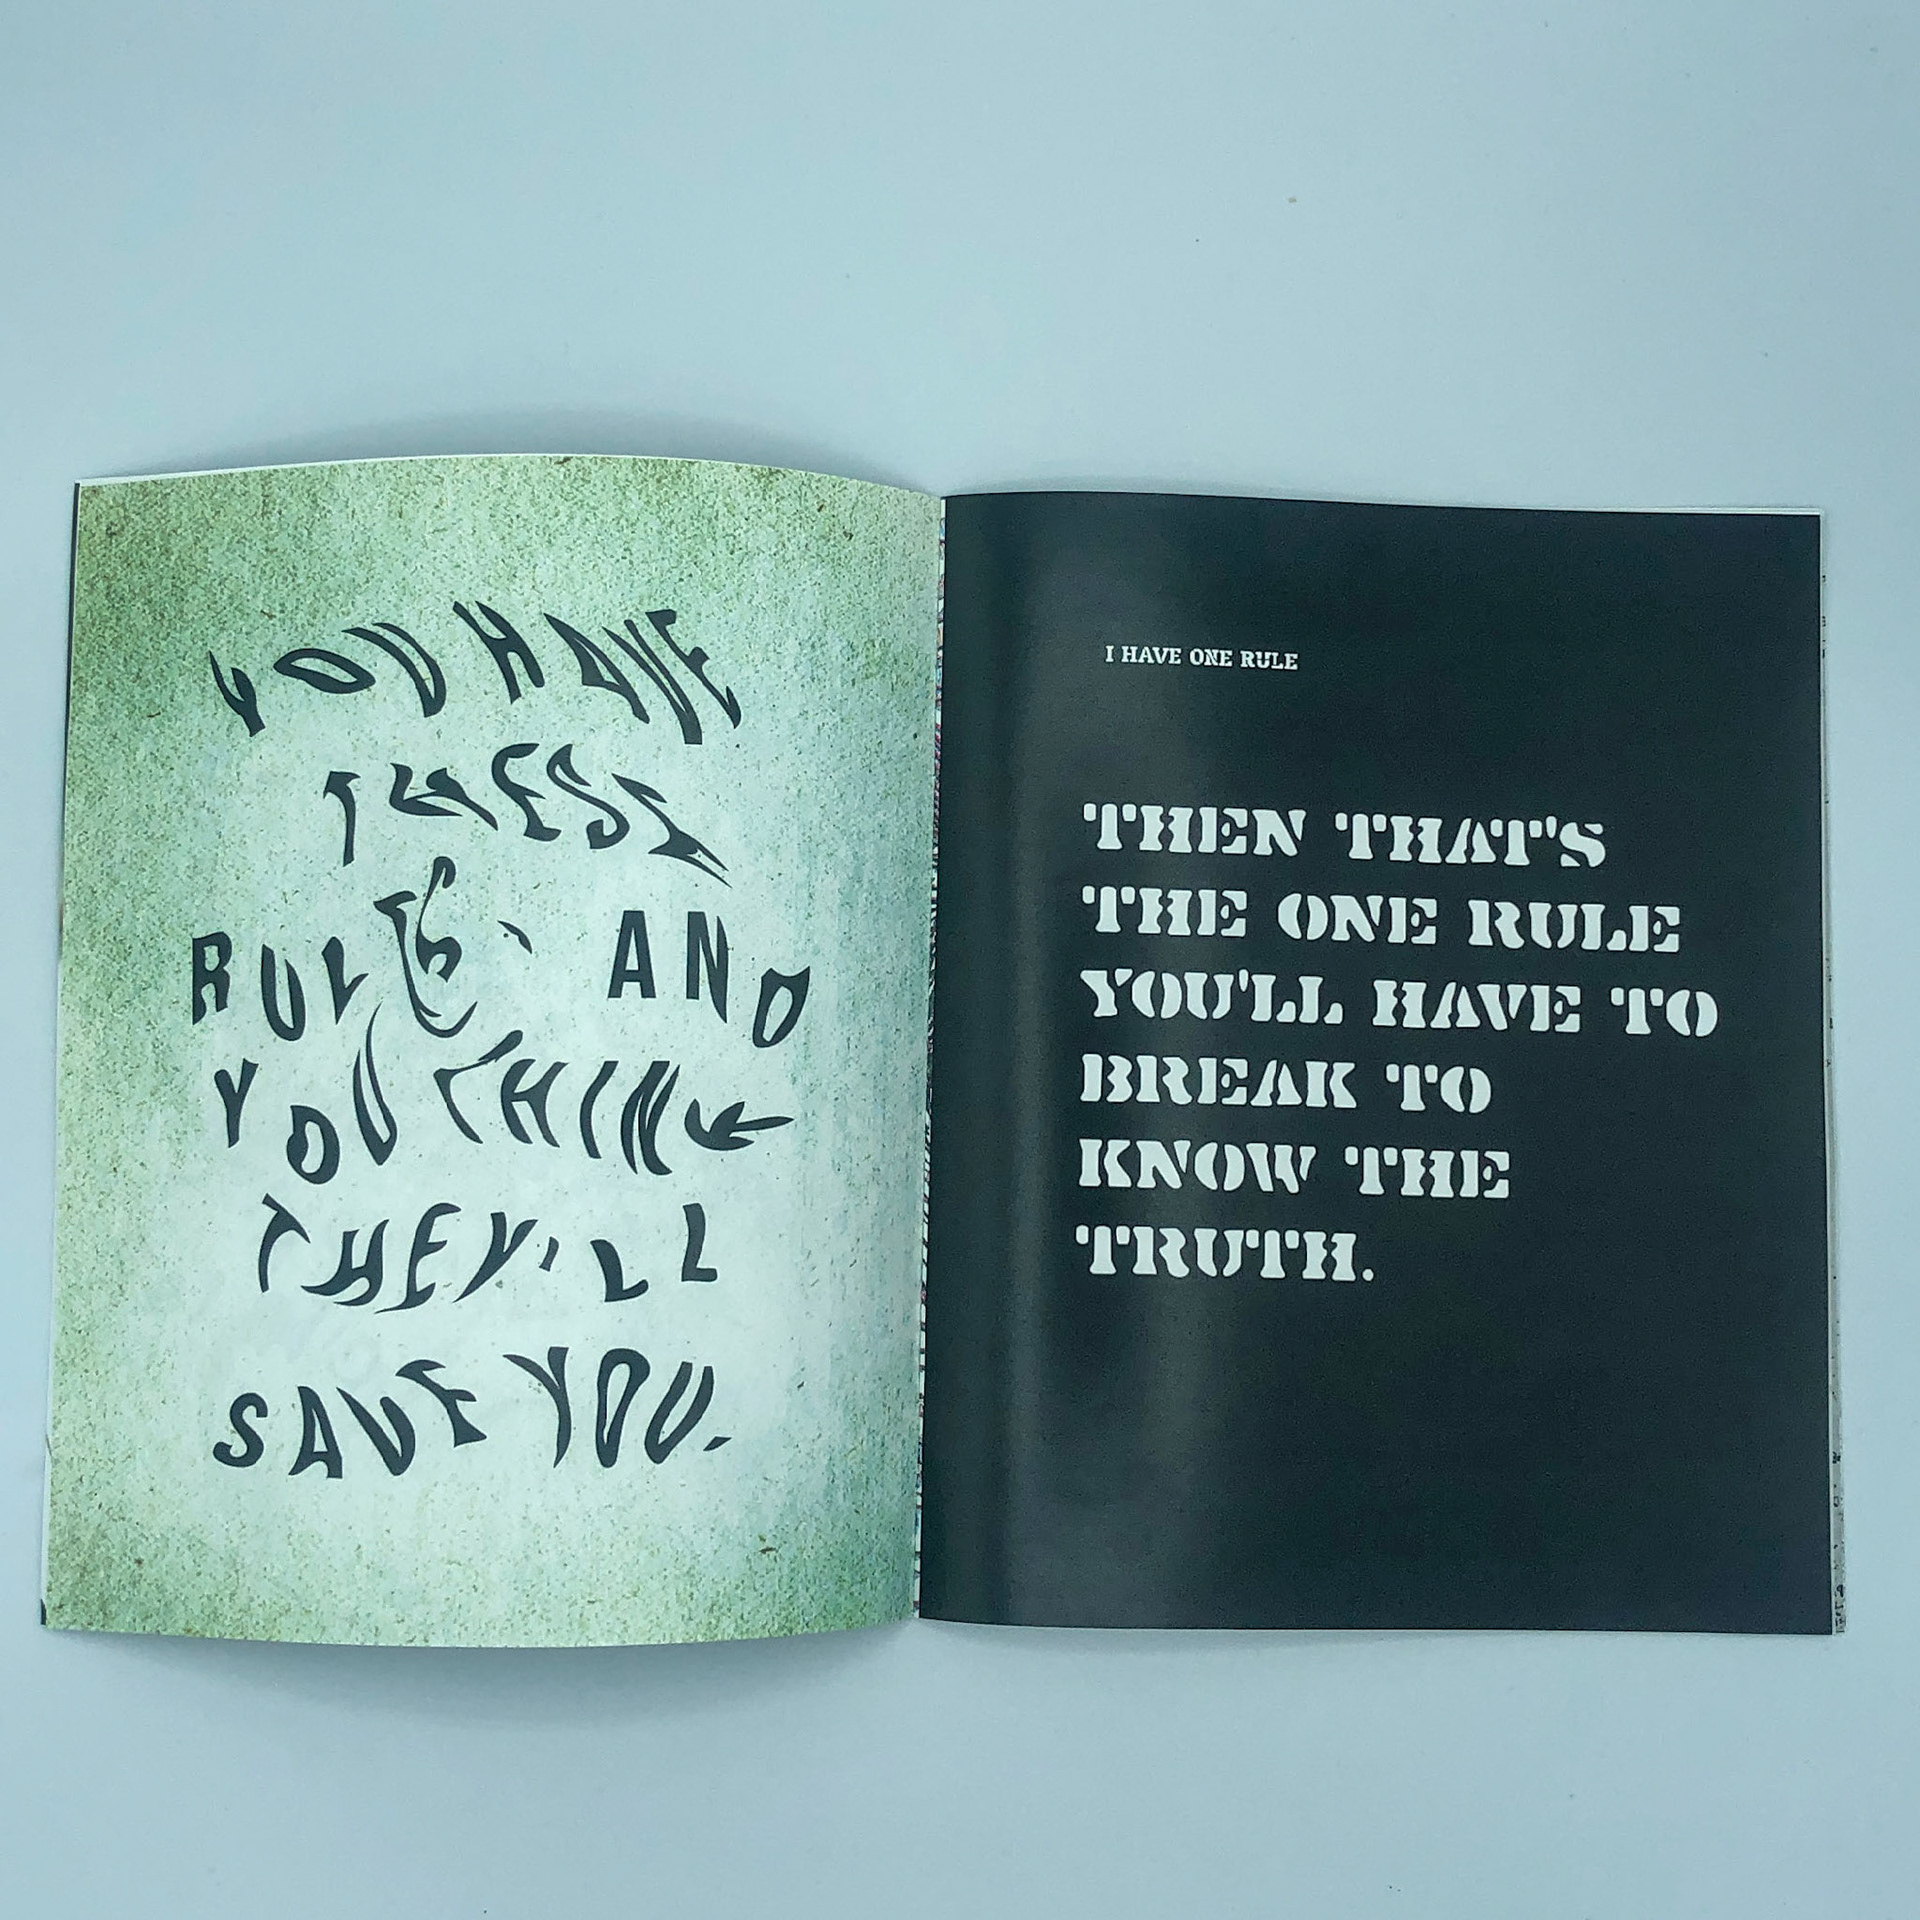 YOU HAVE
THESE
RULES, AND
YOU THINK
THEY'LL
SAVE YOU.
I HAVE ONE RULE
THEN THAT'S
THE ONE RULE
YOU'LL HAVE TO
BREAK TO
KNOW THE
TRUTH.